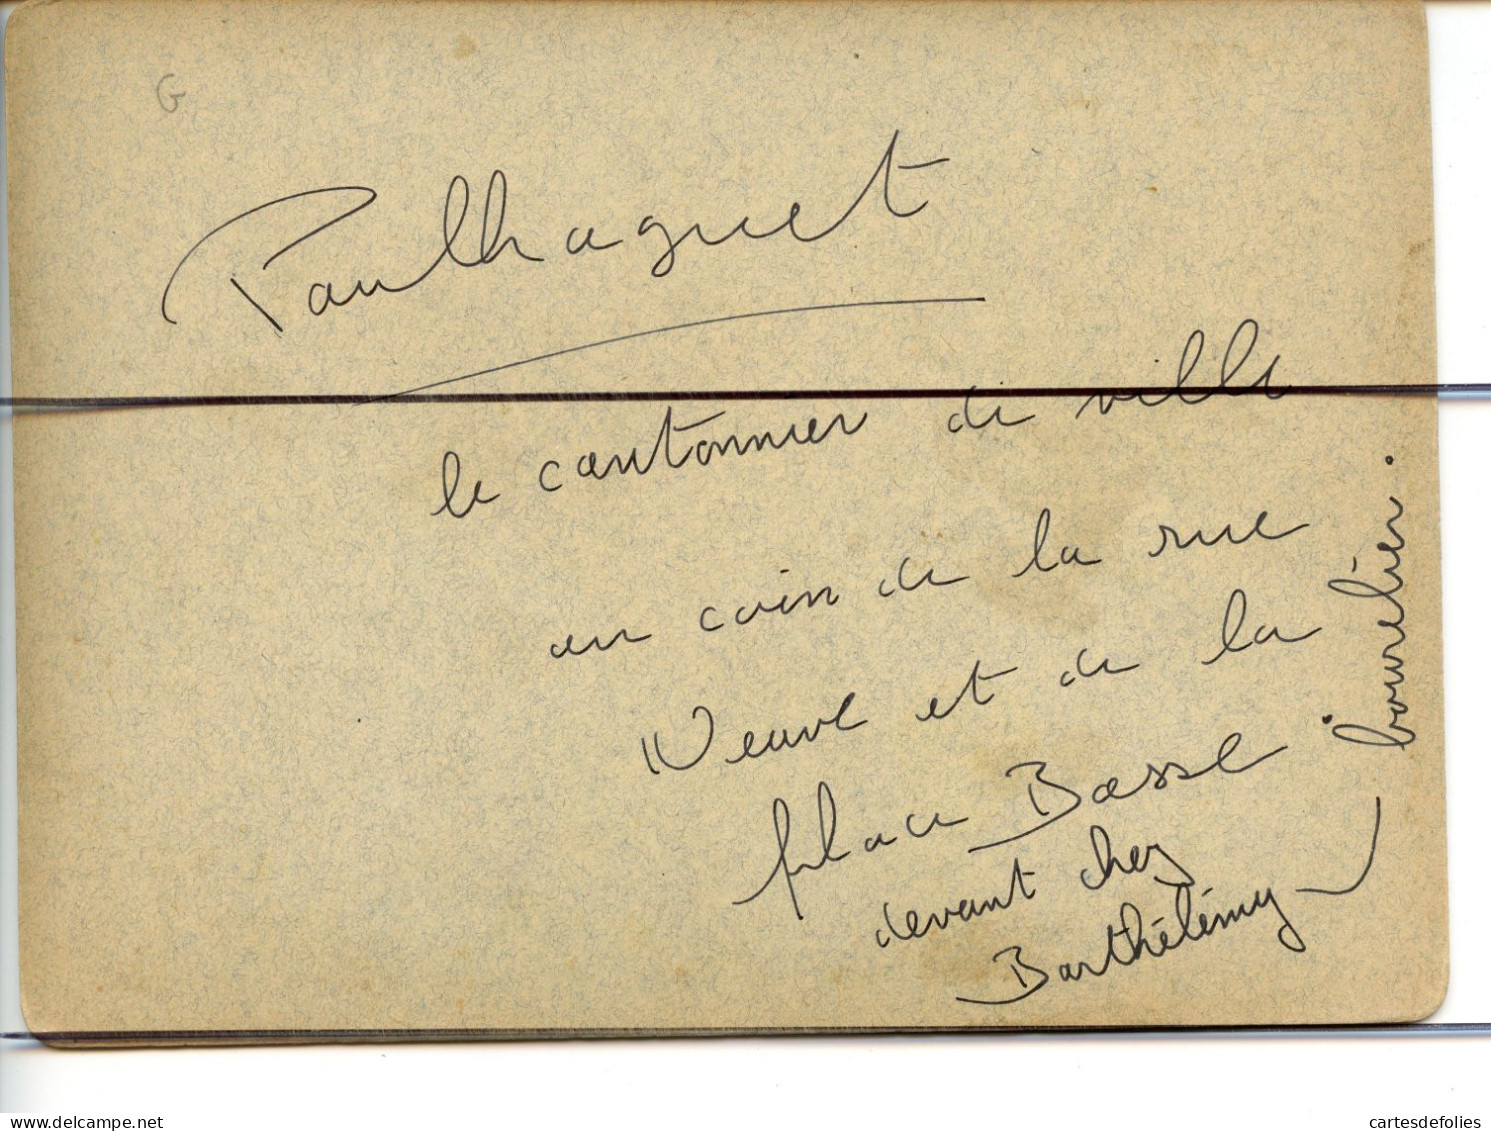 G
Paulhaguet
le cantonnier de ville
au coin de la rue
Neuve et de la
place Basse
devant chez
Barthélémy
bourrelier.
delcampe.net
cartesdefolies